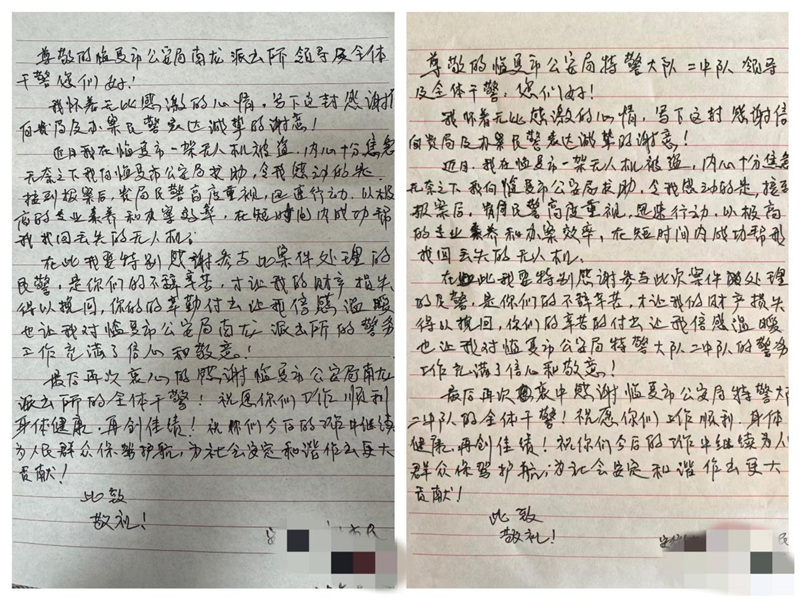 尊敬的临夏市公安局南龙派出所领导及全体
干警您们好！
我怀着无比感激的心情，写下这封感谢
向贵局及办案民警表达诚挚的谢意！
近日我在临夏市一架无人机被盗，内心十分焦急
无奈之下我向临夏市公安局求助，令我感动的是
接到报案后，贵局民警高度重视，迅速行动，以极
高的专业素养和办案效率，在短时间内成功帮
我找回丢失的无人机。
在此我要特别感谢参与此案件处理的
民警，是你们的不辞辛苦，才让我的财产损失
得以挽回，你们的辛勤付出让我倍感温暖
也让我对临夏市公安局南龙派出所的警务
工作充满了信心和敬意！
最后再次衷心的感谢临夏市公安局南龙
派出所的全体干警！祝愿你们工作顺利
身体健康，再创佳绩！祝你们今后的工作中继续
为人民群众保驾护航，为社会安定和谐作出更大
贡献！
此致
敬礼！
尊敬的临夏市公安局特警大队二中队领导
及全体干警，您们好！
我怀着无比感激的心情，写下这封感谢信
向贵局及办案民警表达诚挚的谢意！
近日，我在临夏市一架无人机被盗，内心十分焦急
无奈之下我向临夏市公安局求助，令我感动的是，接到
报案后，贵局民警高度重视，迅速行动，以极高
的专业素养和办案效率，在短时间内成功帮我
找回丢失的无人机。
在此我要特别感谢参与此次案件的处理
的民警，是你们的不辞辛苦，才让我的财产损失
得以挽回，你们的辛苦的付出让我倍感温暖
也让我对临夏市公安局特警大队二中队的警务
工作充满了信心和敬意！
最后再次衷中感谢临夏市公安局特警大
二中队的全体干警！祝愿你们工作顺利，身体
健康，再创佳绩！祝你们今后的工作中继续为人
群众保驾护航，为社会安定和谐作出更大
贡献！
此致
敬礼！